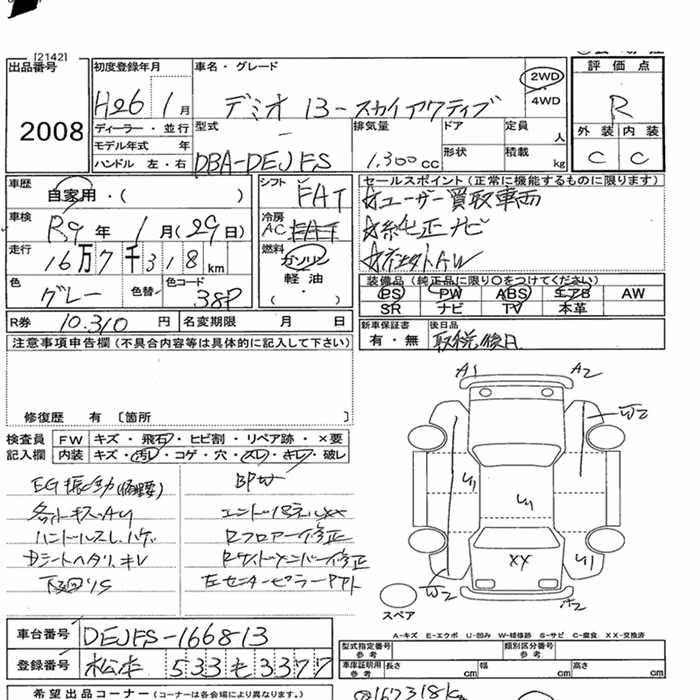 [2142]
出品番号
2008
初度登録年月 車名・グレード
H26 1月 デミオ 13-スカイアクティブ
2WD
4WD
評価点
R
外装 内装
C C
ディーラー・並行 型式 排気量 ドア 定員 人
モデル年式 年
ハンドル 左・右 DBA-DEJFS 1.300cc 形状 積載 kg
車歴 自家用・( )
シフト FAT
車検 R9年 1月(29日)
冷房 AC
走行 16万7千318km
燃料 ガソリン
軽油
・( )
色 グレー 色替 色コード 38P
R券 10.310円 名変期限 月 日
セールスポイント(正常に機能するものに限ります)
☆ユーザー買取車両
☆純正ナビ
☆社外AW
装備品(純正品に限り○をつけてください)
PS PW ABS エアB AW
SR ナビ TV 本革
新車保証書 後日品
有・無 取説後日
注意事項申告欄(不具合内容等は具体的に記入して下さい)
修復歴 有 〔箇所 〕
検査員 FW キズ・飛石・ヒビ割・リペア跡・×要
記入欄 内装 キズ・汚レ・コゲ・穴・スレ・キレ・破レ
EG振動(修理要)
各所キズAU
ハンドルスレ、ハゲ
Dシートヘタリ、キレ
下回りS
BPW
エンドパネルXX
Rフロアー修正
Rサイドメンバー修正
左センターピラーP
A1 A2
W2
U1 U1
XX U1
W2 X2
スペア
A-キズ E-エクボ U-凹み W-補修跡 S-サビ C-腐食 XX-交換済
車台番号 DEJFS-166813
登録番号 松本 533 も 3377
型式指定番号 参考 類別区分番号 参考
車庫証明用 参考 長さ cm 幅 cm 高さ cm
希望出品コーナー(コーナーは各会場により異なります。)
167318km